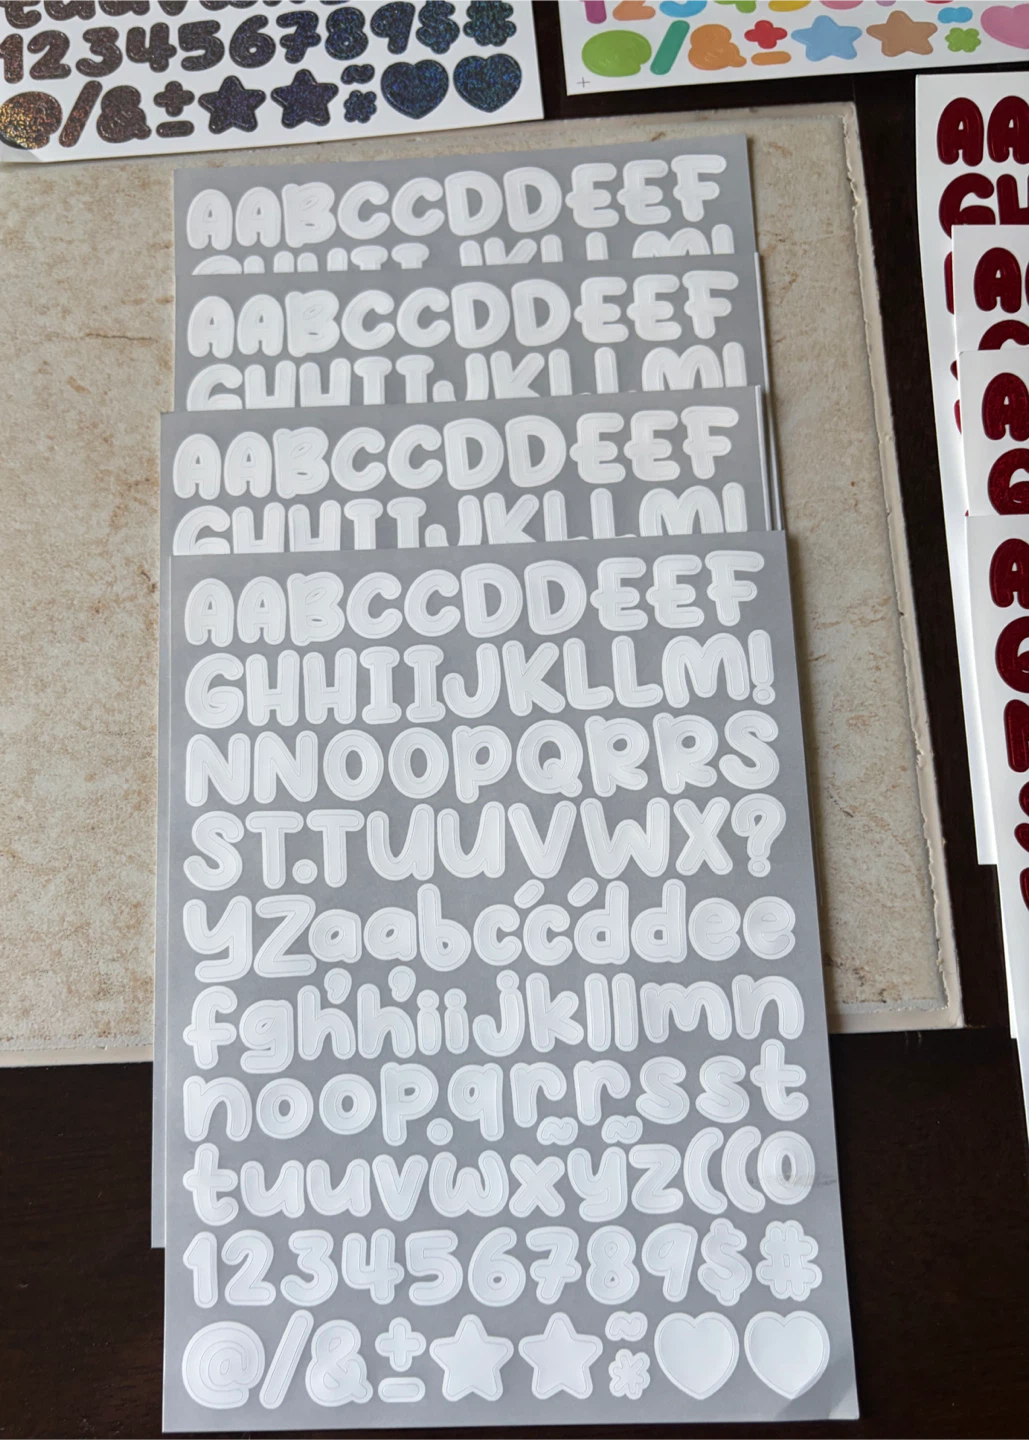 123456789$#
@/&±★★~*♥♥
@/&±★★~*♥
AABCCDDEEF
AABCCDDEEF
GHHIIJKLLM!
AABCCDDEEF
GHHIIJKLLM!
AABCCDDEEF
GHHIIJKLLM!
NNOOPQRRS
ST.TUUVWX?
YZaabcć́ddee
fgh'h'iijkllmn
noopqrrsst
tuuvwxyz((0
123456789$#
@/&±★★~*♥♥
AA
GH
A
A
A